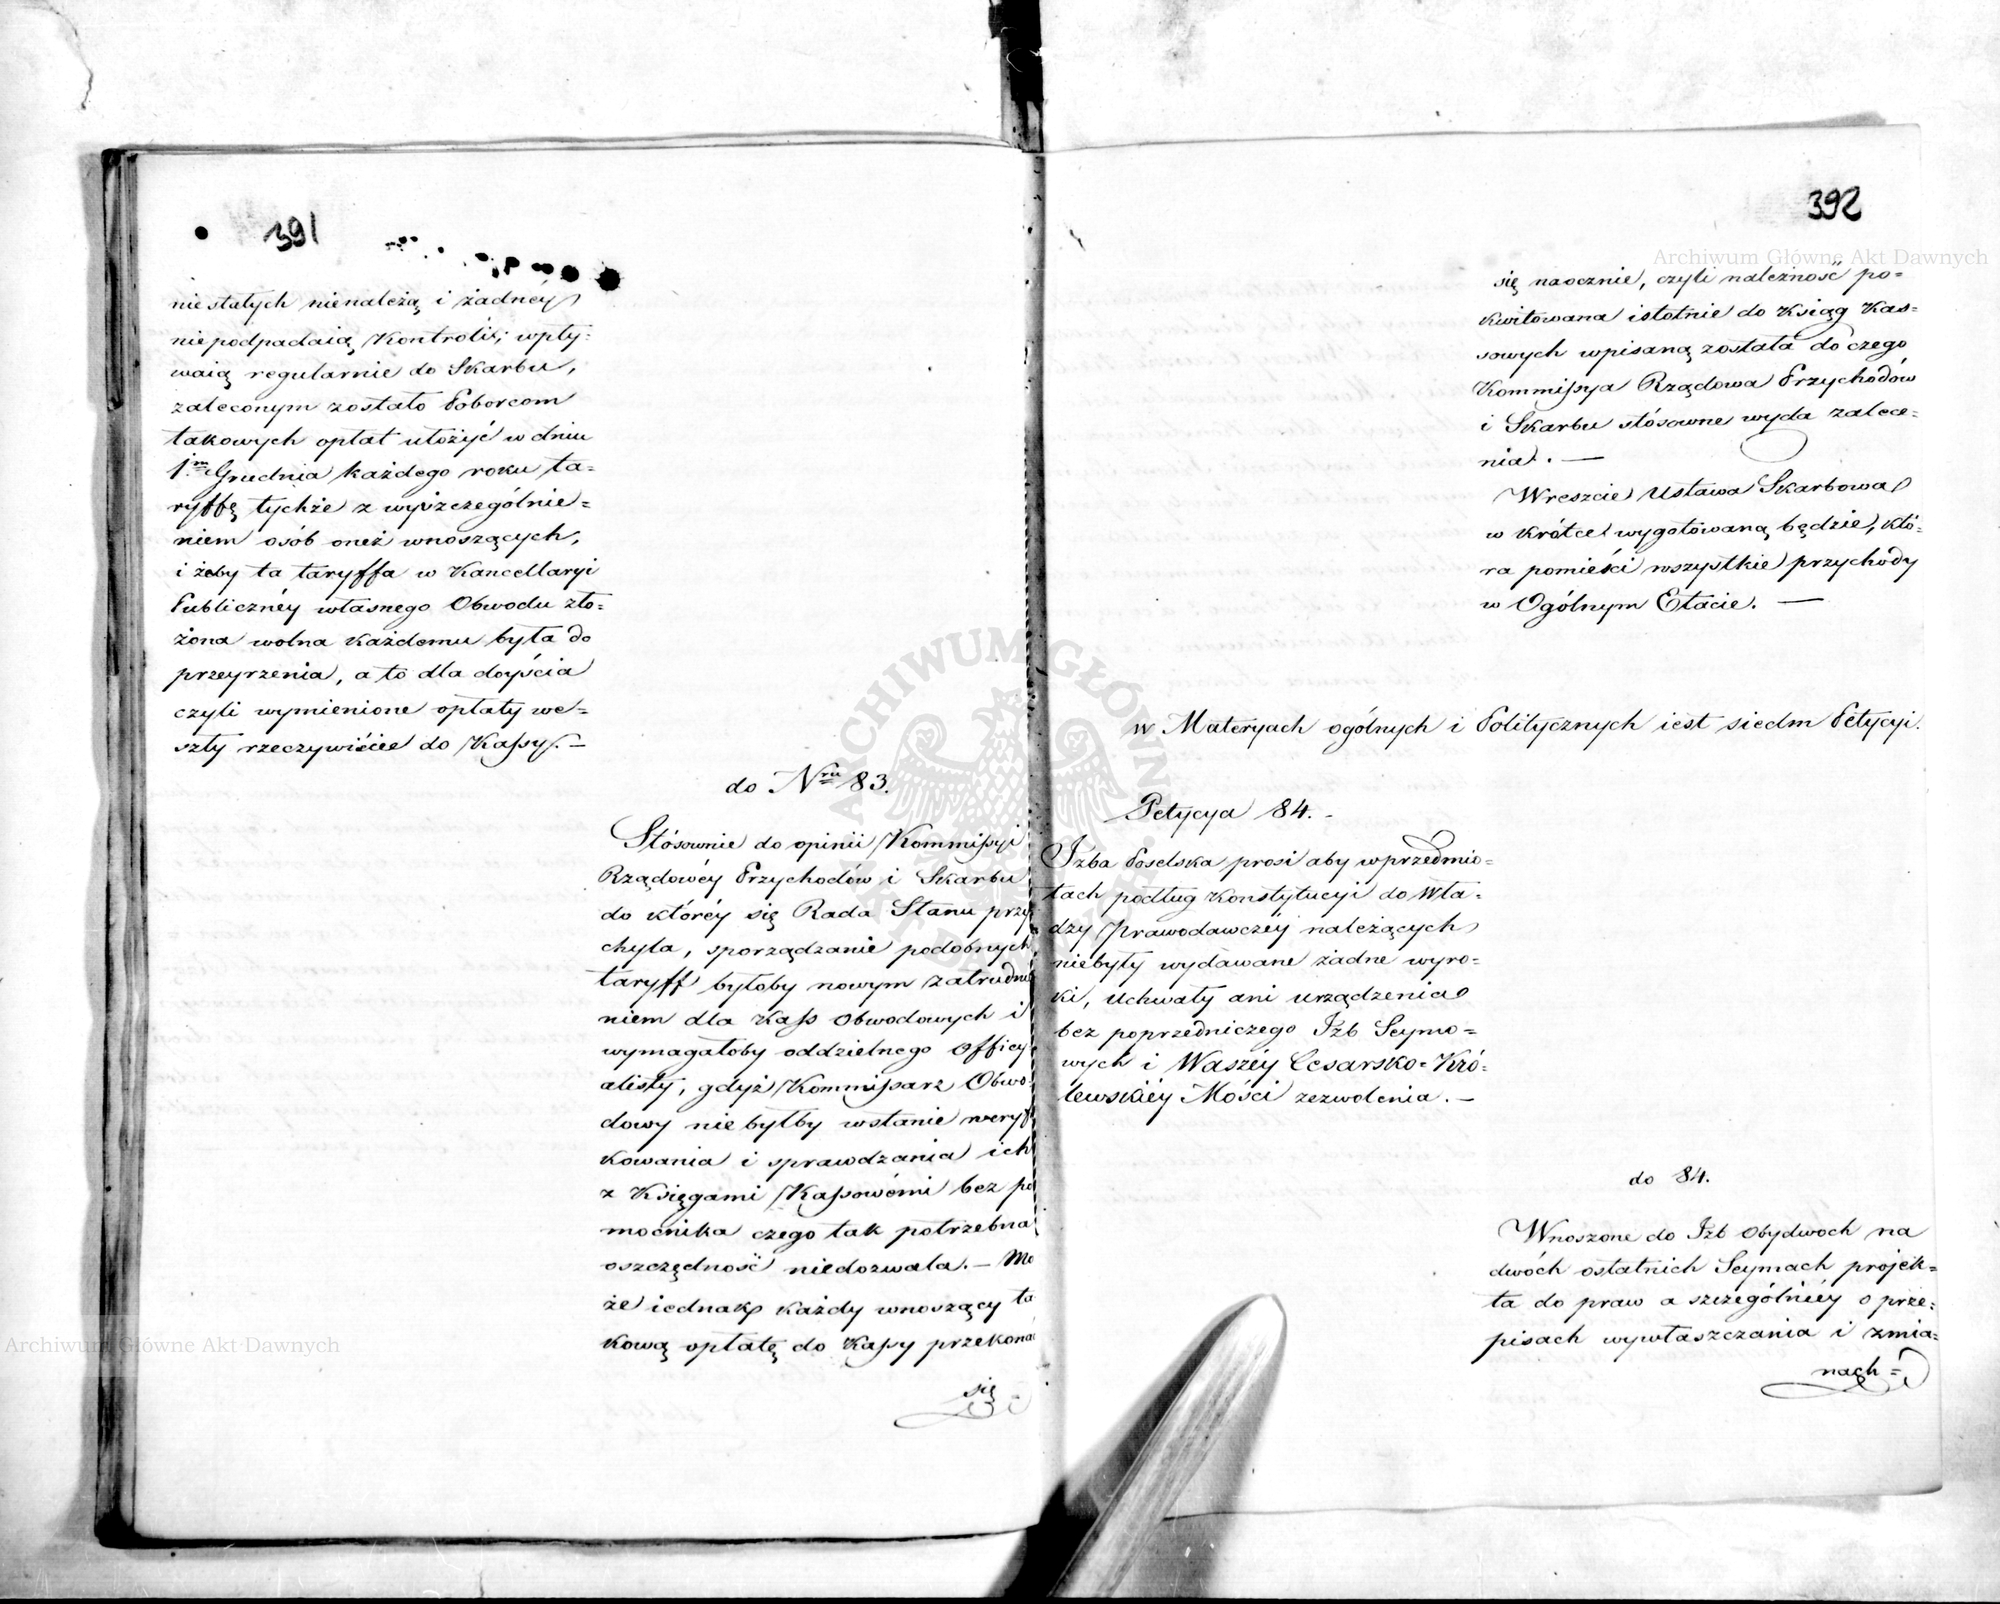 391
niestałych nienależą i żadnéy
niepodpadaią Kontrolli; wpły-
waią regularnie do Skarbu,
zaleconym zostało Poborcom
takowych opłat ułożyć w dniu
1.m Grudnia każdego roku ta-
ryffę tychże z wyszczególnie-
niem osób oneż wnoszących,
i żeby ta taryffa w Kancellaryi
Publicznéy własnego Obwodu zło-
żona wolna każdemu była do
przeyrzenia, a to dla doyścia
czyli wymienione opłaty we-
szły rzeczywiście do Kassy. —
do Nru 83.
Stósownie do opinii Kommissyi
Rządowéy Przychodów i Skarbu
do któréy się Rada Stanu przy
chyla, sporządzanie podobnych
taryff byłoby nowym zatrudnie
niem dla Kass Obwodowych i
wymagałoby oddzielnego Officy
alisty, gdyż Kommissarz Obwo-
dowy niebyłby wstanie weryfi
kowania i sprawdzania ich
z Księgami Kassowémi bez po
mocnika czego tak potrzebna
oszczędność niedozwala. — Mo
że iednak każdy wnoszący ta
kową opłatę do Kassy przekonać
się
392
się naocznie, czyli należność po-
kwitowana istotnie do Ksiąg Kas-
sowych wpisaną została do czego
Kommissya Rządowa Przychodów
i Skarbu stósowne wyda zalece-
nia. —
Wreszcie Ustawa Skarbowa
w krótce wygotowaną będzie, któ-
ra pomieści wszystkie przychody
w Ogólnym Etacie. —
w Materyach ogólnych i Politycznych iest siedm Petycyi.
Petycya 84. -
Izba Poselska prosi aby wprzedmio-
tach podług Konstytucyi do Wła-
dzy Prawodawczéy należących
niebyły wydawane żadne wyro-
ki, Uchwały ani urządzenia
bez poprzedniczego Izb Seymo-
wych i Waszéy Cesarsko-Kró-
lewskiéy Mości zezwolenia. —
do 84.
Wnoszone do Izb Obydwoch na
dwóch ostatnich Seymach projek-
ta do praw a szczególniéy o prze-
pisach wywłaszczania i zmia-
nach -
Archiwum Główne Akt Dawnych
Archiwum Główne Akt Dawnych